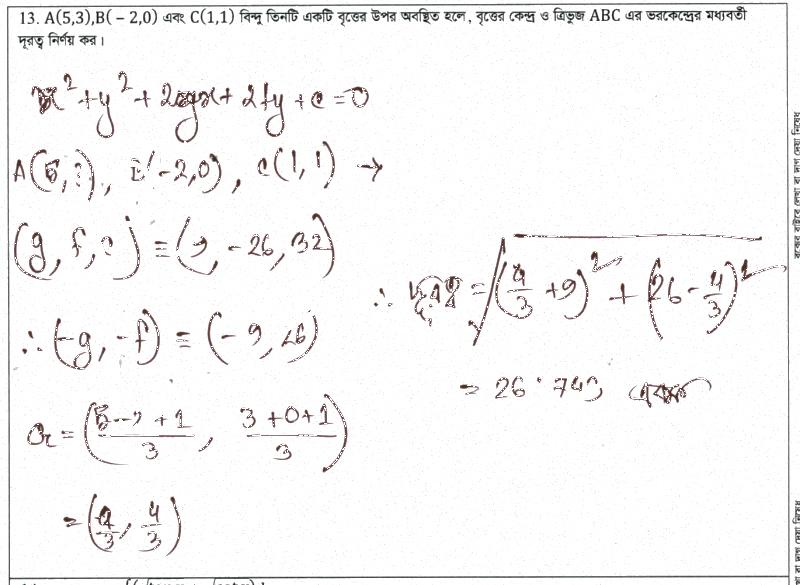 13. A(5,3),B( – 2,0) এবং C(1,1) বিন্দু তিনটি একটি বৃত্তের উপর অবস্থিত হলে , বৃত্তের কেন্দ্র ও ত্রিভুজ ABC এর ভরকেন্দ্রের মধ্যবর্তী
দূরত্ব নির্ণয় কর।
x² + y² + 2gx + 2fy + c = 0
A(5,3), B(-2,0), C(1,1) →
(g, f, c) ≡ (9, -26, 32)
∴ (-g, -f) ≡ (-9, 26)
G = ((5-2+1)/3 , (3+0+1)/3)
= (4/3, 4/3)
∴ দূরত্ব = √((4/3 + 9)² + (26 - 4/3)²)
= 26.743 একক